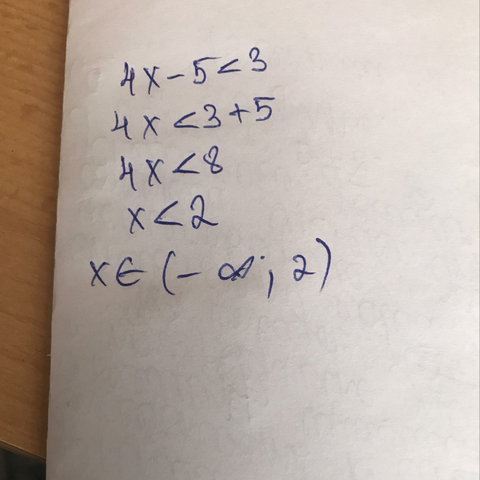 4x-5<3
4x<3+5
4x<8
x<2
x∈(-∞; 2)